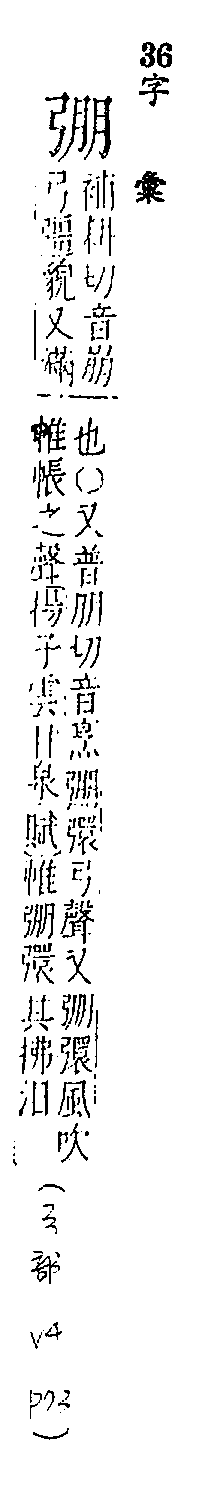 36字彙
弸
補耕切音崩
弓彊貌又滿
也○又普朋切音烹弸彋弓聲又弸彋風吹
帷帳之聲揚子雲甘泉賦帷弸彋其拂汨
(弓部 v4 p73)